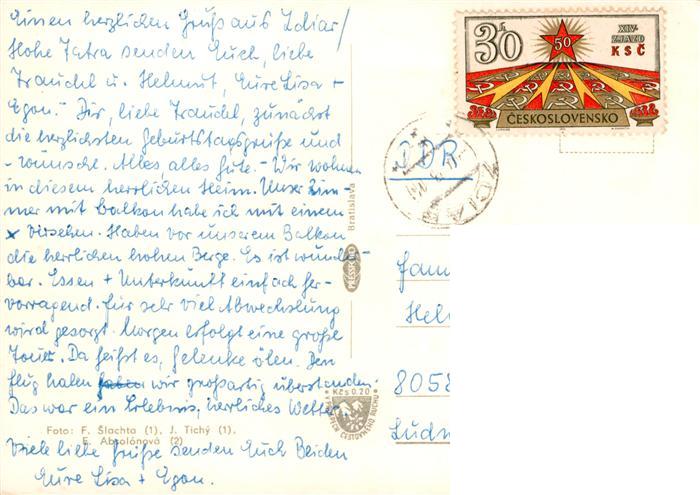 Einen herzlichen Gruß aus Zdiar/
Hohe Tatra senden Euch, liebe
Traudel u. Helmut, Eure Lisa +
Egon. Dir, liebe Traudel, zunächst
die herzlichsten Geburtstagsgrüße und
- wünsche. Alles, alles Gute. - Wir wohnen
in diesem herrlichen Heim. Unser Zim-
mer mit Balkon habe ich mit einem
x versehen. Haben vor unserem Balkon
die herrlichen hohen Berge. Es ist wunder-
bar. Essen + Unterkunft einfach her-
vorragend. Für sehr viel Abwechslung
wird gesorgt. Morgen erfolgt eine große
Tour. Da heißt es, Gelenke ölen. Den
Flug haben wir großartig überstanden.
Das war ein Erlebnis, herrliches Wetter.
Foto: F. Šlachta (1), J. Tichý (1),
E. Absolónová (2)
Viele liebe Grüße senden Euch Beiden
Eure Lisa + Egon.
Bratislava
PRESSFOTO
Kčs 0.20
30 h
50
XIV.
ZJAZD
KSČ
ČESKOSLOVENSKO
DDR
ZDIAR
Fam
Hel
8058
Ludw